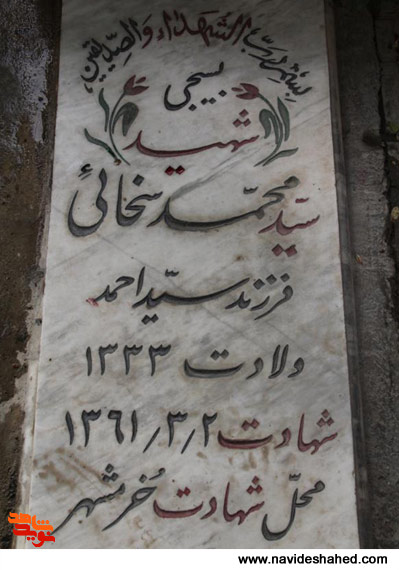 بسم رب الشهداء والصدیقین
بسیجی
شهید
سیّد محمّد سخائی
فرزند سیّد احمد
ولادت ۱۳۳۳
شهادت ۱۳۶۱/۳/۲
محلّ شهادت خُرمشهر
نوید شاهد
www.navideshahed.com